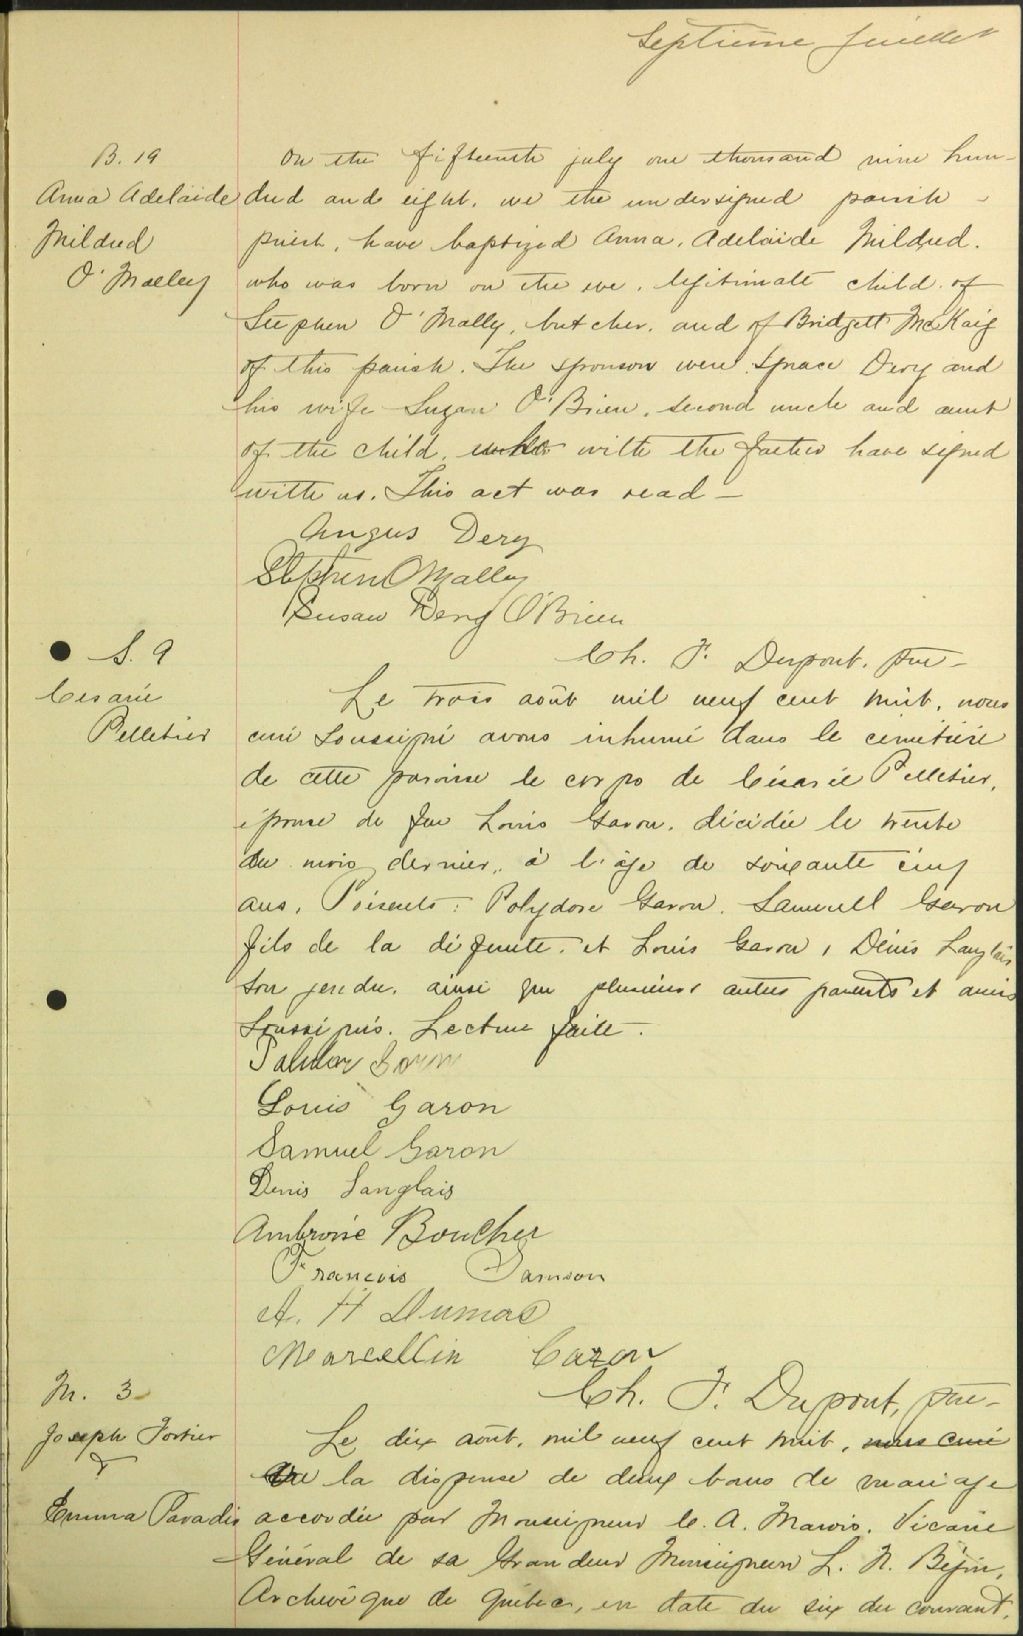 Septième feuillet
B. 19
Anna Adelaide
Mildred
O'Malley
On the fifteenth july one thousand nine hun-
dred and eight, we the undersigned parish
priest, have baptized Anna, Adelaide Mildred.
who was born on the eve, legitimate child of
Stephen O'Mally, butcher, and of Bridgett McKaig
of this parish. The sponsors were Dery and
his wife Suzan O'Brien, second uncle and aunt
of the child, who with the father have signed
with us. This act was read –
Angus Dery
Stephen OMalley
Susan Dery O'Brien
Ch. F. Dupont, ptre –
S. 9
Cesarie
Pelletier
Le trois août mil neuf cent huit, nous
curé soussigné avons inhumé dans le cimetière
de cette paroisse le corps de Césarie Pelletier,
épouse de feu Louis Garon, décédée le trente
du mois dernier, à l'âge de soixante cinq
ans, Présents : Polydore Garon, Samuell Garon
fils de la défunte, et Louis Garon, Dénis Langlais
son gendre, ainsi que plusieurs autres parents et amis
soussignés. Lecture faite –
Garon
Louis Garon
Samuel Garon
Denis Langlais
Ambroise Boucher
Francois Samson
A. H Dumas
Marcellin Cazon
Ch. F. Dupont, ptre –
M. 3
Joseph Fortier
&
Emma Paradis
Le dix août, mil neuf cent huit, nous curé
Vu la dispense de deux bans de mariage
accordée par Monseigneur C. A. Marois, Vicaire
Général de sa Grandeur Monseigneur L. N. Bégin,
Archevêque de Québec, en date du six du courant,